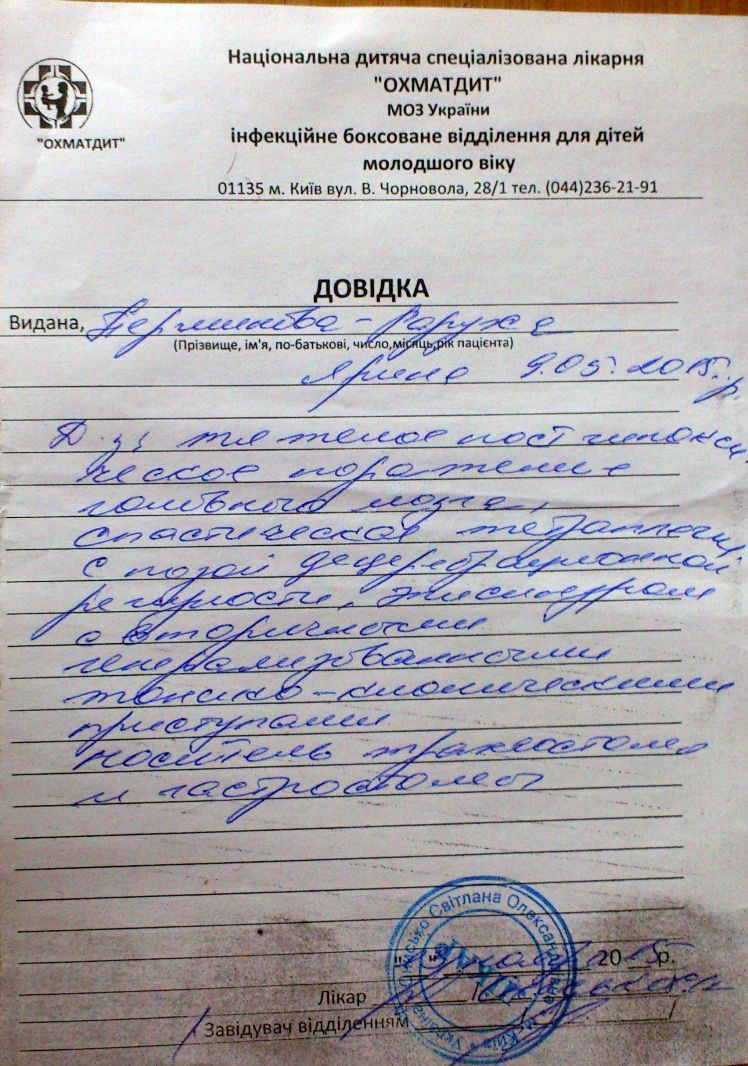 Національна дитяча спеціалізована лікарня
"ОХМАТДИТ"
МОЗ України
"ОХМАТДИТ"
інфекційне боксоване відділення для дітей
молодшого віку
01135 м. Київ вул. В. Чорновола, 28/1 тел. (044)236-21-91
ДОВІДКА
Видана,
(Прізвище, ім'я, по-батькові, число,місяць,рік пацієнта)
Ярина 9.05.2015 р.
Д-з: тяжелое постгипокси-
ческое поражение
головного мозга,
спастическая тетраплегия
с позой децеребрационной
регидности, эписиндром
с вторичными
генерализованными
тонико-клоническими
приступами
носитель трахеостомы
и гастростомы
Світлана
20 15 р.
Лікар
Завідувач відділенням